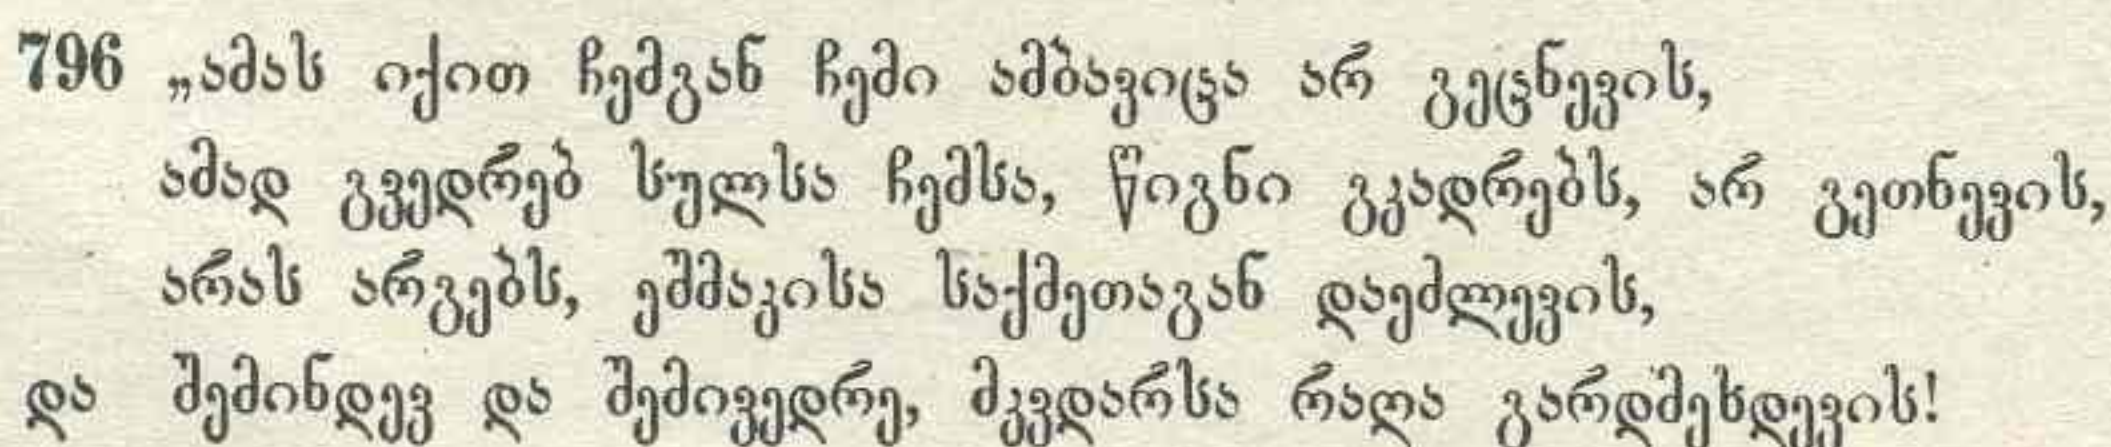 796 „ამას იქით ჩემგან ჩემი ამბავიცა არ გეცნევის,
ამად გვედრებ სულსა ჩემსა, წიგნი გკადრებს, არ გეთნევის,
არას არგებს, ეშმაკისა საქმეთაგან დაეძლევის,
და შემინდევ და შემივედრე, მკვდარსა რაღა გარდმეხდევის!